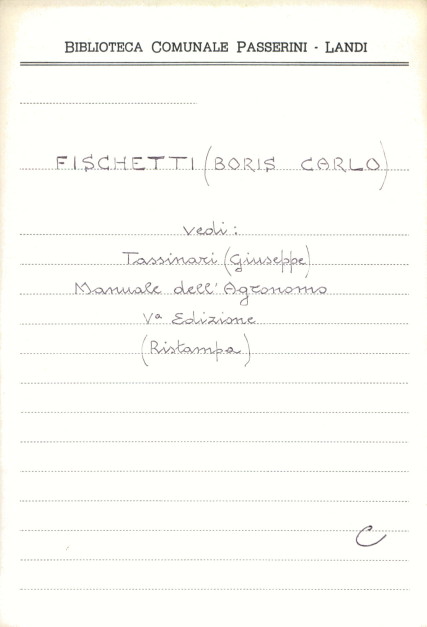 BIBLIOTECA COMUNALE PASSERINI - LANDI
FISCHETTI (BORIS CARLO)
vedi:
Tassinari (Giuseppe)
Manuale dell'Agronomo
Vª Edizione
(Ristampa)
C